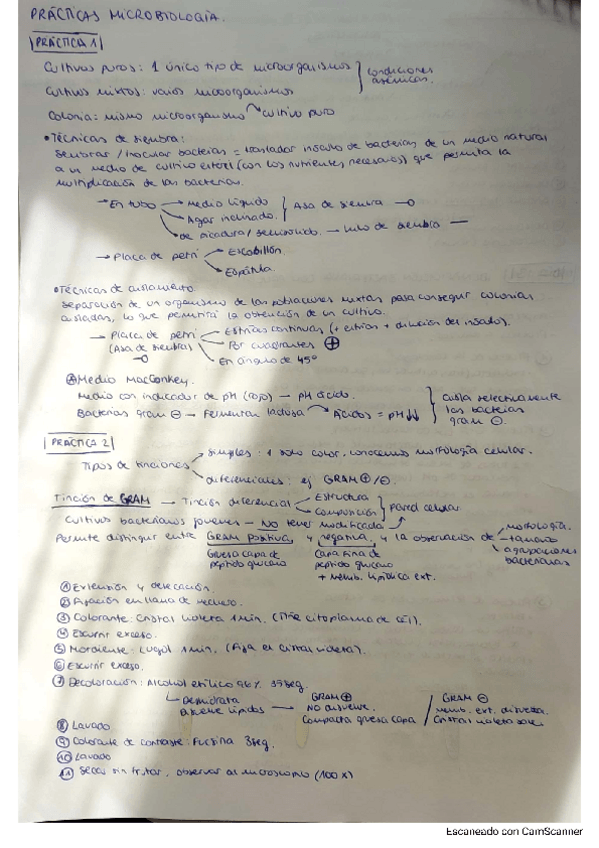 PRÁCTICAS MICROBIOLOGÍA.
PRÁCTICA 1
Cultivos puros: 1 único tipo de microorganismos
Cultivos mixtos: varios microorganismos
condiciones
asémicas.
Colonia: mismo microorganismo → cultivo puro
• Técnicas de siembra:
Sembrar / inocular bacterias = trasladar inóculo de bacterias de un medio natural
a un medio de cultivo estéril (con los nutrientes necesarios) que permita la
multiplicación de las bacterias.
→ En tubo → Medio líquido
→ Agar inclinado.
Asa de siembra
→ de picadura / semisólido. → hilo de siembra
→ Placa de petri → Escobillón.
→ Espátula.
• Técnicas de aislamiento
Separación de un organismo de las poblaciones mixtas para conseguir colonias
aisladas, lo que permitirá la obtención de un cultivo.
→ Placa de petri → Estrías continuas (+ estrías + dilución del inóculo).
(Asa de siembra) → Por cuadrantes ⊕
→ En ángulo de 45º
Medio MacConkey.
Medio con indicador de pH (rojo) — pH ácido.
Bacterias gram ⊖ → Fermentan lactosa → Ácidos = pH ↓↓
aísla selectivamente
las bacterias
gram ⊖.
PRÁCTICA 2
Tipos de tinciones → simples: 1 solo color, conocemos morfología celular.
→ diferenciales: ej GRAM ⊕/⊖.
Tinción de GRAM → Tinción diferencial → Estructura
→ Composición
pared celular
Cultivos bacterianos jóvenes — NO tener modificada
Permite distinguir entre GRAM positiva, y negativa, y la observación de → morfología.
→ tamaño
→ agrupaciones
bacterianas
Gruesa capa de
peptidoglucano
Capa fina de
peptidoglucano
+ memb. lipídica ext.
① Extensión y desecación.
② Fijación en llama de mechero.
③ Colorante: Cristal violeta 1 min. (Tiñe citoplasma de cél).
④ Escurrir exceso.
⑤ Mordiente: Lugol 1 min. (Fija el cristal violeta).
⑥ Escurrir exceso.
⑦ Decoloración: Alcohol etílico 96%.
→ Deshidrata
Disuelve lípidos →
GRAM ⊕
NO disuelve.
Compacta gruesa capa
GRAM ⊖
Memb. ext. disuelta.
Cristal violeta sale
⑧ Lavado
⑨ Colorante de contraste: Fucsina
⑩ Lavado
⑪ Secar sin frotar, observar al microscopio (100x)
Escaneado con CamScanner